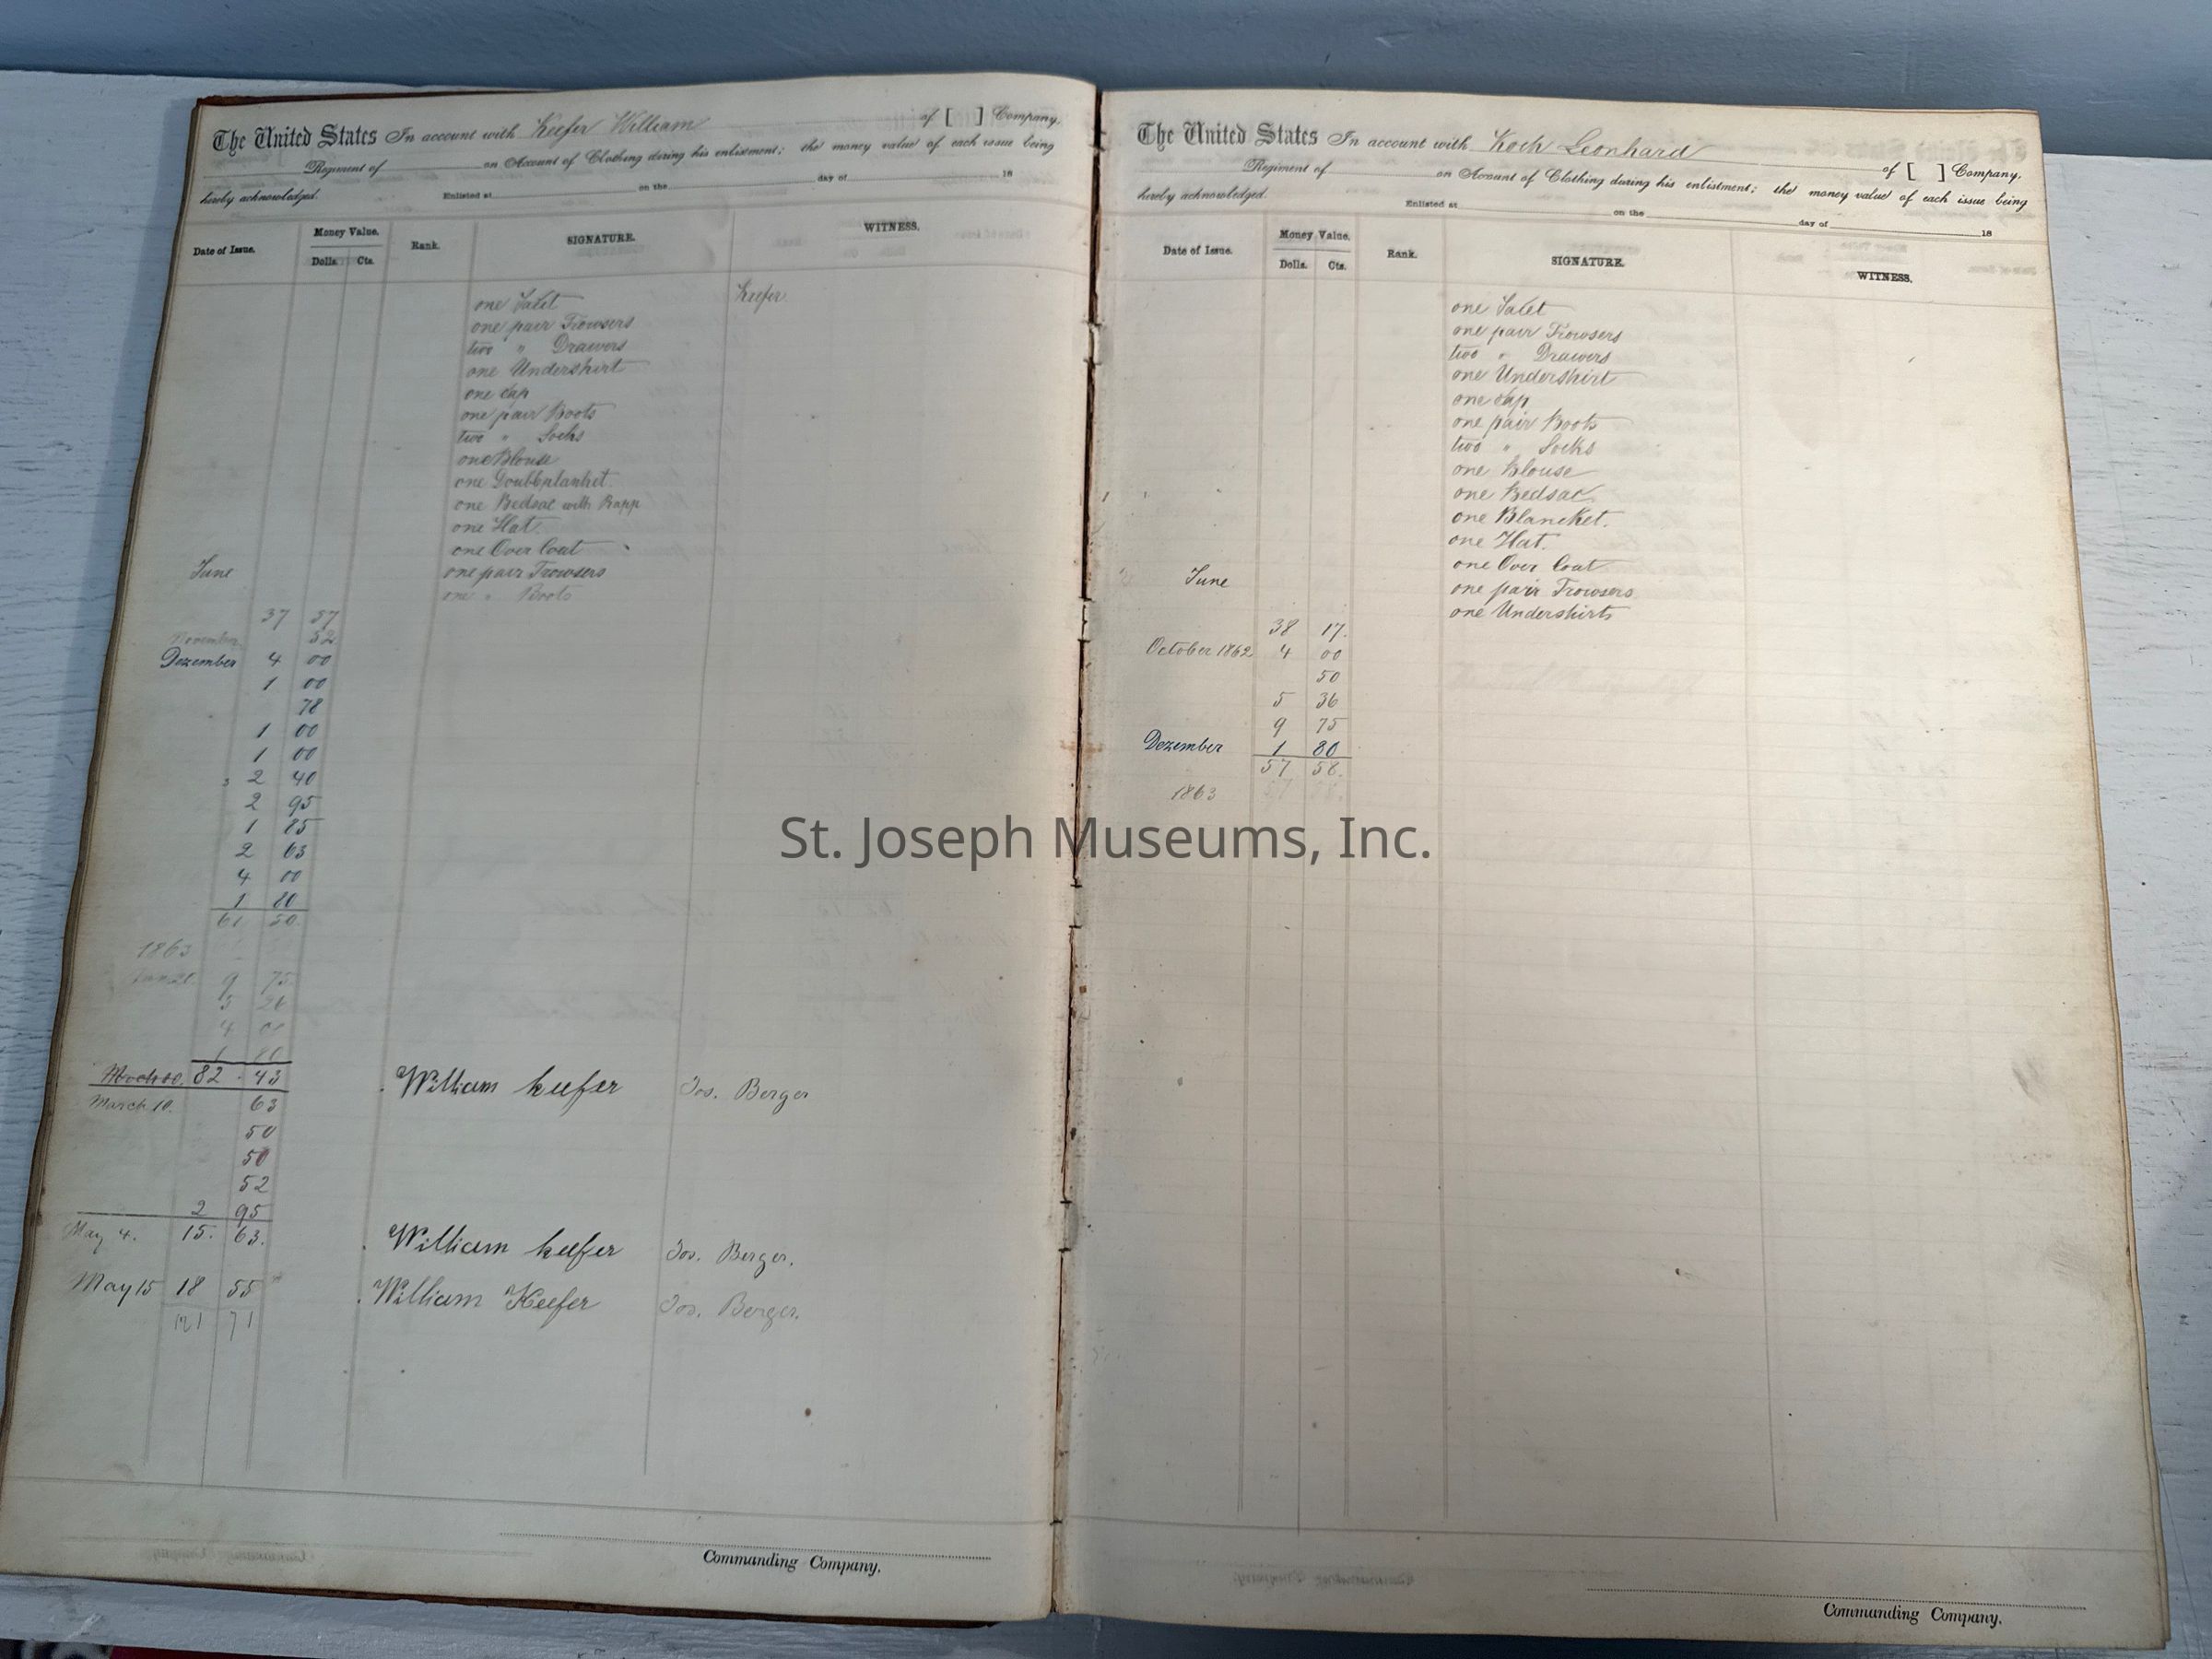 The United States In account with Keefer William of [ ] Company,
Regiment of on Account of Clothing during his enlistment; the money value of each issue being
hereby acknowledged. Enlisted at on the day of 18
Date of Issue. Money Value. Rank. SIGNATURE. WITNESS.
Dolls. Cts.
one Jacet Keefer
one pair Trowsers
two " Drawers
one Undershirt
one Cap
one pair Boots
two " Socks
one Blouse
one Doubbplanket.
one Bedsac with Rapp
one Hat.
one Over Coat
June one pair Trowsers
one " Boots
37 37
November 32
Dezember 4 00
1 00
78
1 00
1 00
2 40
2 95
1 85
2 63
4 00
1 80
61 50.
1863
9 75
3 26
4 00
1 80
March 10. 82 43 William keefer Jos. Berger
March 10. 63
50
50
52
2 95
May 4. 15. 63. William keefer Jos. Berger.
May 15 18 55 William Keefer Jos. Berger.
121 71
Commanding Company.
The United States In account with Koch Leonhard of [ ] Company,
Regiment of on Account of Clothing during his enlistment; the money value of each issue being
hereby acknowledged. Enlisted at on the day of 18
Date of Issue. Money Value. Rank. SIGNATURE. WITNESS.
Dolls. Cts.
one Jacet
one pair Trowsers
two " Drawers
one Undershirt
one Cap
one pair Boots
two " Socks
one Blouse
one Bedsac.
one Blancket.
one Hat.
one Over Coat
June one pair Trowsers
one Undershirts
38 17.
October 1862 4 00
50
5 36
9 75
Dezember 1 80
57 58.
1863 57 58.
Commanding Company.
St. Joseph Museums, Inc.